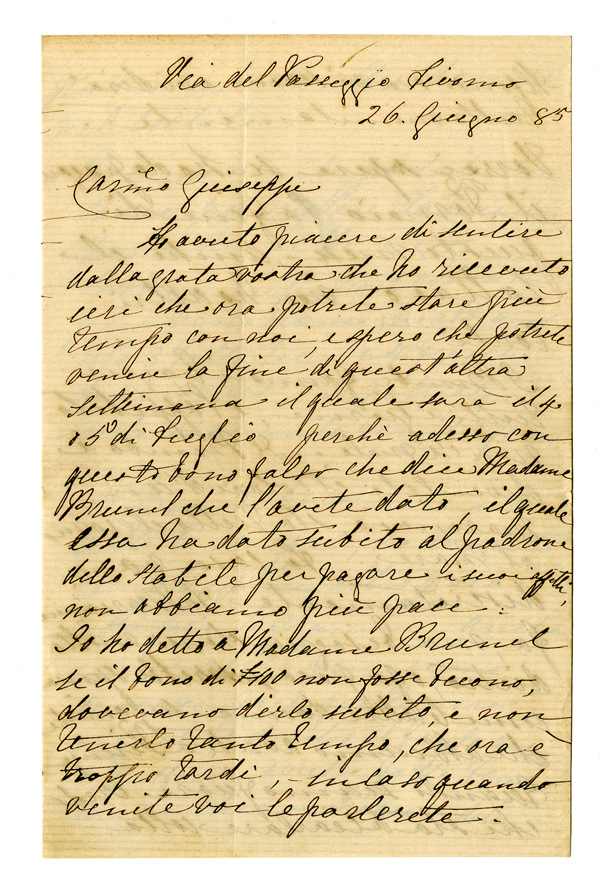 Via del Passeggio Livorno
26. Giugno 85
Carmo Giuseppe
Ho avuto piacere di sentire
dalla grata vostra che ho ricevuto
ieri che ora potrete stare più
tempo con noi, e spero che potrete
venire la fine di quest'altra
settimana il quale sarà il 4
o 5 di Luglio perchè adesso con
questo bono falso che dice Madame
Brunel che l'avete dato, il quale
essa ha dato subito al padrone
dello stabile per pagare i suoi affitti,
non abbiamo più pace.
Io ho detto a Madame Brunel
se il bono di 100 non fosse bono,
dovevano dirlo subito, e non
tenerlo tanto tempo, che ora è
troppo tardi, - in caso quando
venite voi le parlerete.